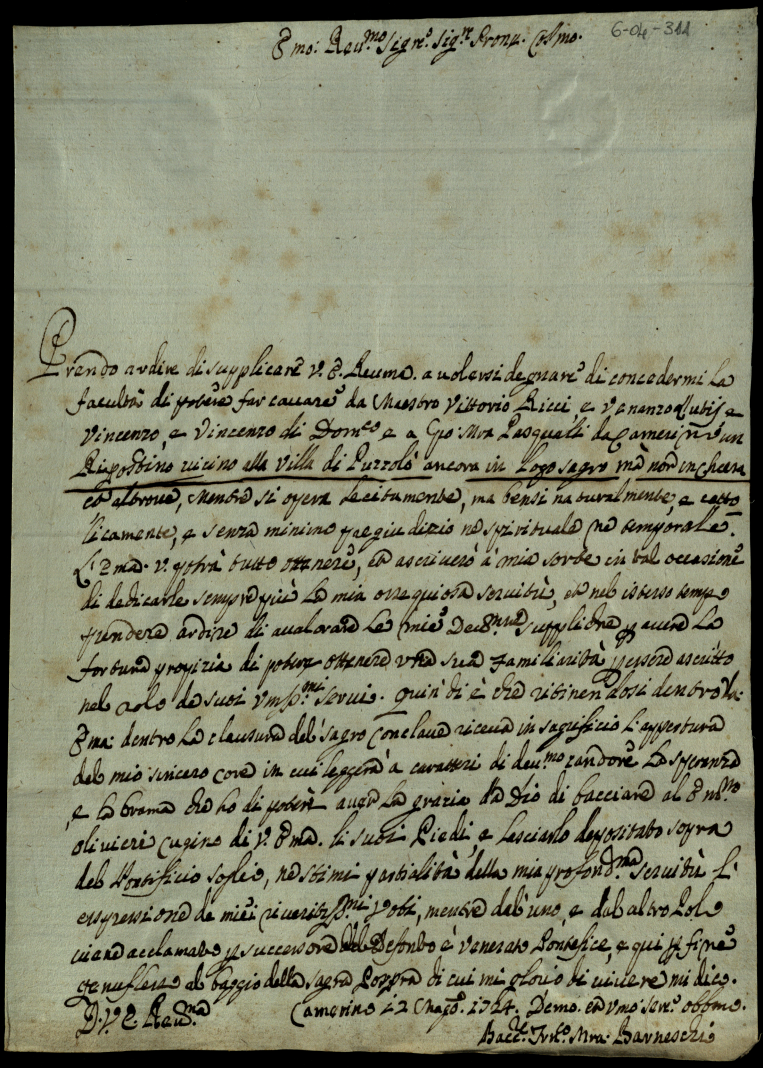 6-04-311
Emo: Reu.mo Sig.re Sig.re Prone. Colmo.
Prendo ardire di supplicare V. E. Reuma. a uolersi degnare di concedermi la
facultà di potere far cauare da Maestro Vittorio Ricci, e Venanzo
Vincenzo, e Vincenzo di Dom.co e a Gio: Mra Pasquali da Camerino un
Ripostino uicino alla Villa di Pozzolo ancora in logo sagro mà non in Chiesa
ed altroue, mentre si opera lecitamente, ma bensi naturalmente, e catto
licamente, e senza minimo pregiudizio ne spirituale ne temporale.
L'Ema. V. potrà tutto ottenere, ed ascriuerò à mia sorte in tal occasione
di dedicarle sempre più la mia ossequiosa seruitù, et nel istesso tempo
prendere ardire di aualorare le mie suppliche p auere la
fortuna propizia di poter ottenere una sua familiarità p essere ascritto
nel rolo de suoi serui. Quindi è che ritinendosi dentro
Ema: dentro la clausura del sagro Conclaue riceua in sagrificio l'appertura
del mio sincero core in cui leggerà a caratteri di deu.mo candore la speranza
e la brama che ho di potere auer la grazia da Dio di bacciare al Em.mo
oliuieri cugino di V. Ema. li suoi Piedi, e lasciarlo depositato sopra
del Pontificio soglio, ne stimi partialità della mia profond.ma seruitù l'
espressione de miei riueritiss.mi voti, mentre del uno, e dal altro Polo
uiene acclamato p successore del Defonto è Venerato Pontefice, e qui p fine
genuflesso al baggio della sagra Porpra di cui mi glorio di uiuere mi dico.
D. V. E. Reu.ma Camerino 12 Mag.o 1724. Demo. ed Vmo Ser.e obbmo.
Bacc.re Mra. Barneschi